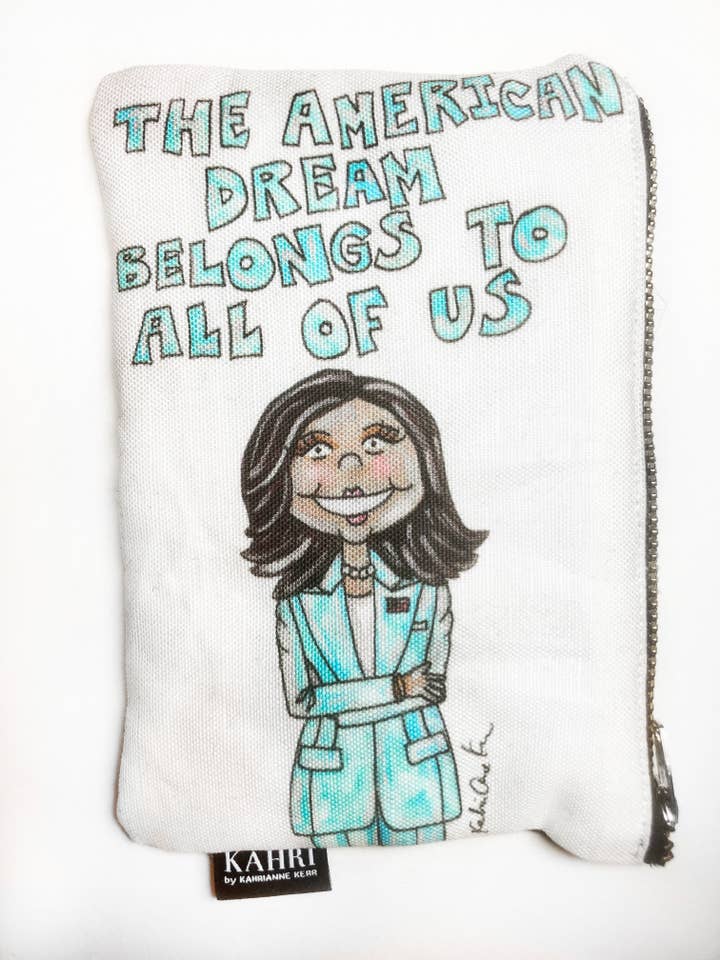 THE AMERICAN
DREAM
BELONGS TO
ALL OF US
KAHRI
by KAHRIANNE KERR